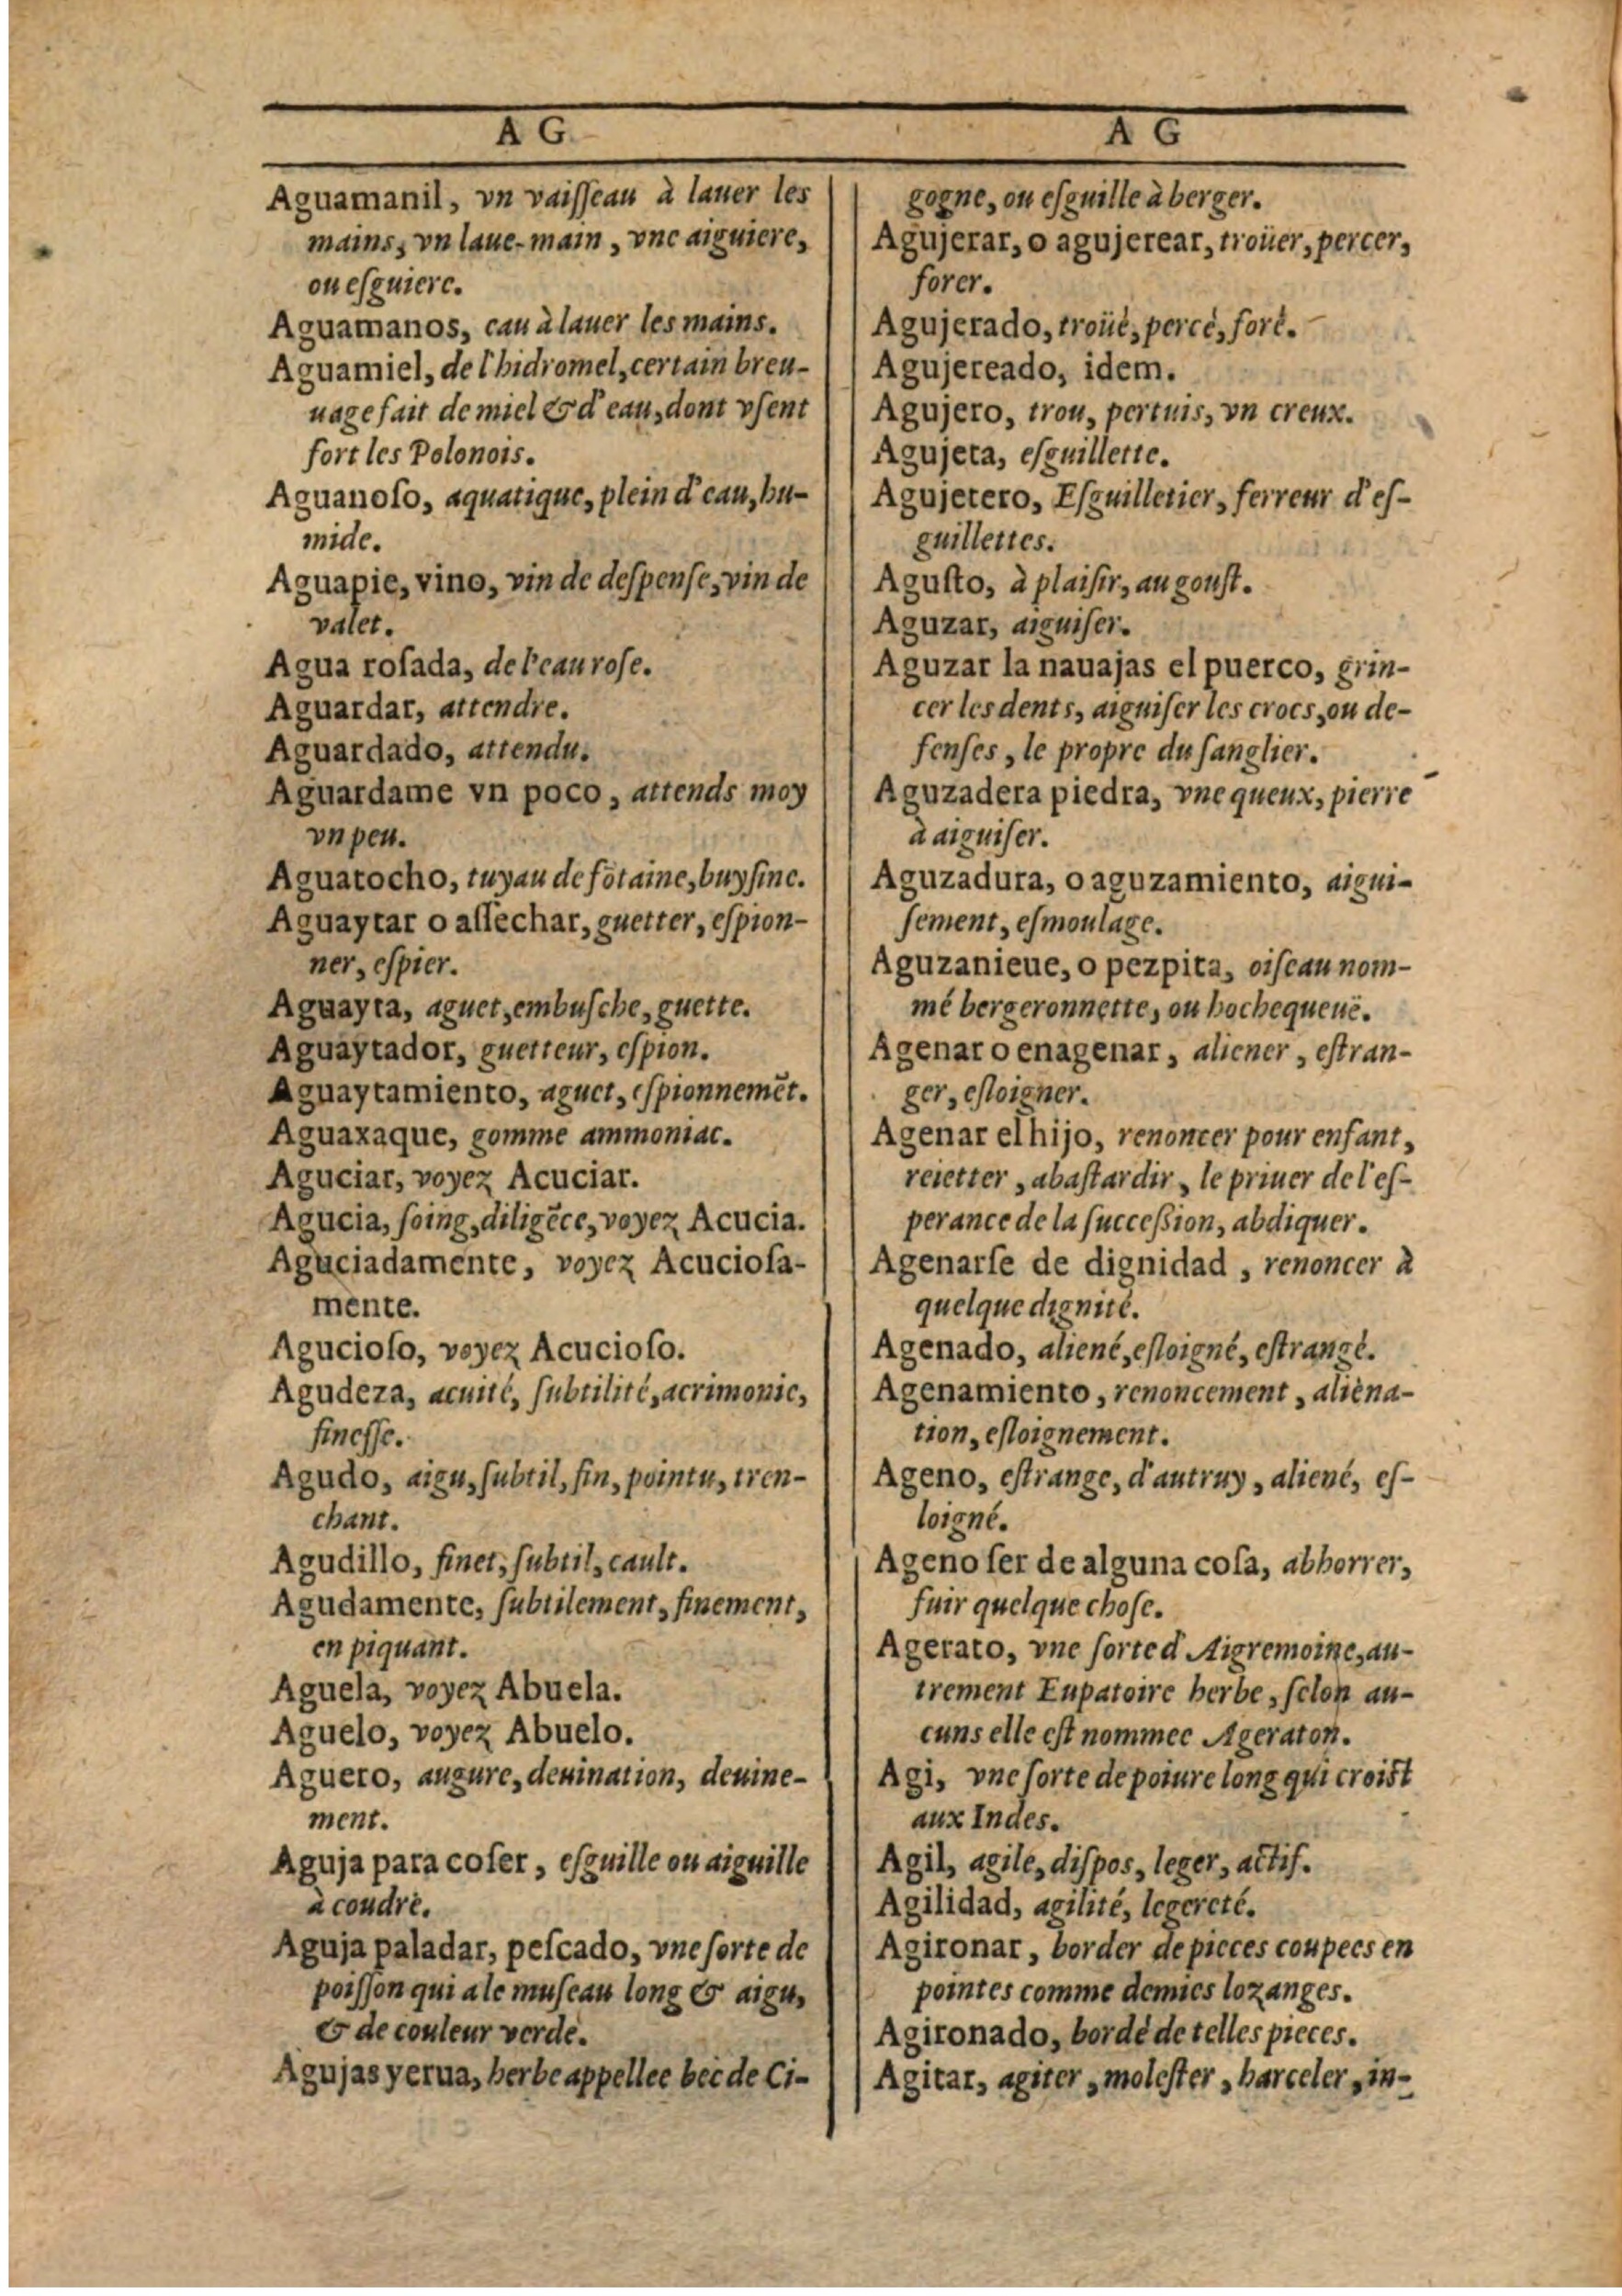 A G
Aguamanil, vn vaiſſeau à lauer les
mains, vn laue-main, vne aiguiere,
ou eſguiere.
Aguamanos, eau à lauer les mains.
Aguamiel, de l'hidromel, certain breu-
uage fait de miel & d'eau, dont vſent
fort les Polonois.
Aguanoſo, aquatique, plein d'eau, hu-
mide.
Aguapie, vino, vin de deſpenſe, vin de
valet.
Agua roſada, de l'eau roſe.
Aguardar, attendre.
Aguardado, attendu.
Aguardame vn poco, attends moy
vn peu.
Aguatocho, tuyau de fõtaine, buyſine.
Aguaytar o aſſechar, guetter, eſpion-
ner, eſpier.
Aguayta, aguet, embuſche, guette.
Aguaytador, guetteur, eſpion.
Aguaytamiento, aguet, eſpionnemẽt.
Aguaxaque, gomme ammoniac.
Aguciar, voyez Acuciar.
Agucia, ſoing, diligẽce, voyez Acucia.
Aguciadamente, voyez Acucioſa-
mente.
Agucioſo, voyez Acucioſo.
Agudeza, acuité, ſubtilité, acrimonie,
fineſſe.
Agudo, aigu, ſubtil, fin, pointu, tren-
chant.
Agudillo, finet, ſubtil, cault.
Agudamente, ſubtilement, finement,
en piquant.
Aguela, voyez Abuela.
Aguelo, voyez Abuelo.
Aguero, augure, deuination, deuine-
ment.
Aguja para coſer, eſguille ou aiguille
à coudre.
Aguja paladar, peſcado, vne ſorte de
poiſſon qui a le muſeau long & aigu,
& de couleur verde.
Agujas yerua, herbe appellee bec de Ci-
A G
gogne, ou eſguille à berger.
Agujerar, o agujerear, troüer, percer,
forer.
Agujerado, troüé, percé, foré.
Agujereado, idem.
Agujero, trou, pertuis, vn creux.
Agujeta, eſguillette.
Agujetero, Eſguilletier, ferreur d'eſ-
guillettes.
Aguſto, à plaiſir, au gouſt.
Aguzar, aiguiſer.
Aguzar la nauajas el puerco, grin-
cer les dents, aiguiſer les crocs, ou de-
fenſes, le propre du ſanglier.
Aguzadera piedra, vne queux, pierre
à aiguiſer.
Aguzadura, o aguzamiento, aigui-
ſement, eſmoulage.
Aguzanieue, o pezpita, oiſeau nom-
mé bergeronnette, ou hochequeuë.
Agenar o enagenar, aliener, eſtran-
ger, eſloigner.
Agenar el hijo, renoncer pour enfant,
reietter, abaſtardir, le priuer de l'eſ-
perance de la ſucceſſion, abdiquer.
Agenarſe de dignidad, renoncer à
quelque dignité.
Agenado, aliené, eſloigné, eſtrangé.
Agenamiento, renoncement, aliena-
tion, eſloignement.
Ageno, eſtrange, d'autruy, aliené, eſ-
loigné.
Ageno ſer de alguna coſa, abhorrer,
fuir quelque choſe.
Agerato, vne ſorte d'Aigremoine, au-
trement Eupatoire herbe, ſelon au-
cuns elle eſt nommee Ageraton.
Agi, vne ſorte de poiure long qui croiſt
aux Indes.
Agil, agile, diſpos, leger, actif.
Agilidad, agilité, legereté.
Agironar, border de pieces coupees en
pointes comme demies lozanges.
Agironado, bordé de telles pieces.
Agitar, agiter, moleſter, harceler, in-